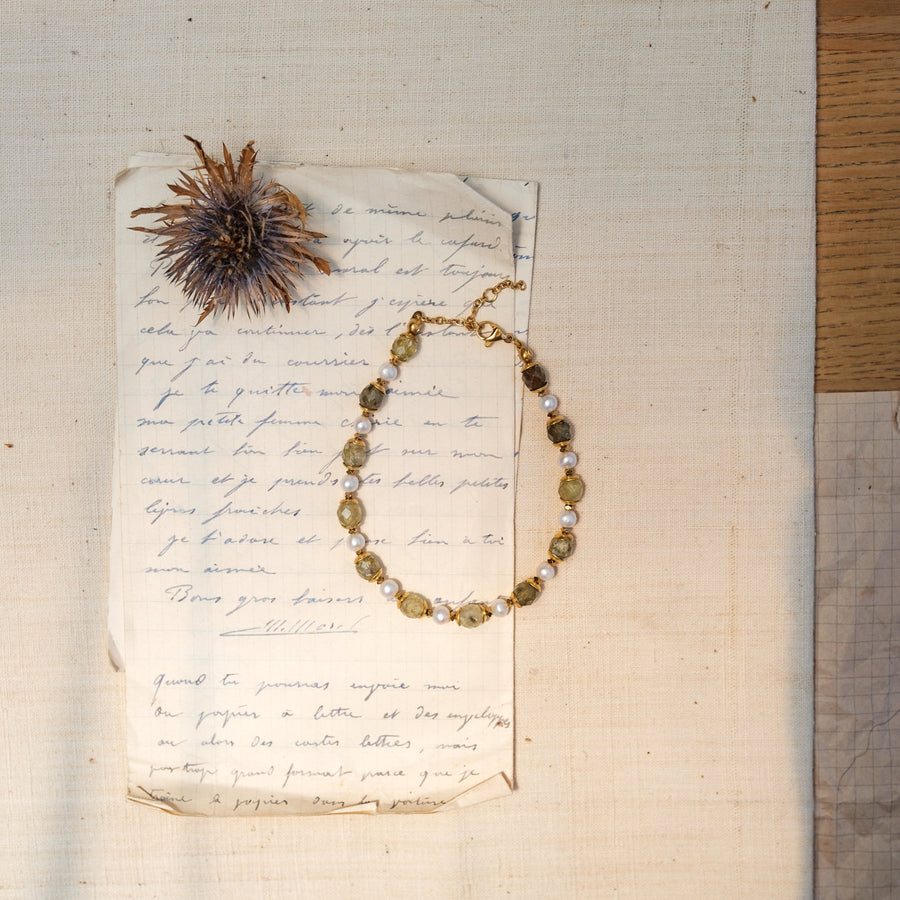 de même
après le cafard.
moral est toujours
bon
cela va continuer, dès l'instant
que j'ai du courrier
je te quitte mon aimée
ma petite femme chérie en te
serrant bien bien sur mon
cœur et je prends tes belles petites
lèvres fraîches
je t'adore et pense bien à toi
mon aimée
Bons gros baisers
Quand tu pourras envoie moi
du papier à lettre et des enveloppes
ou alors des cartes lettres, mais
pas trop grand format parce que je
traîne le papier dans la voiture